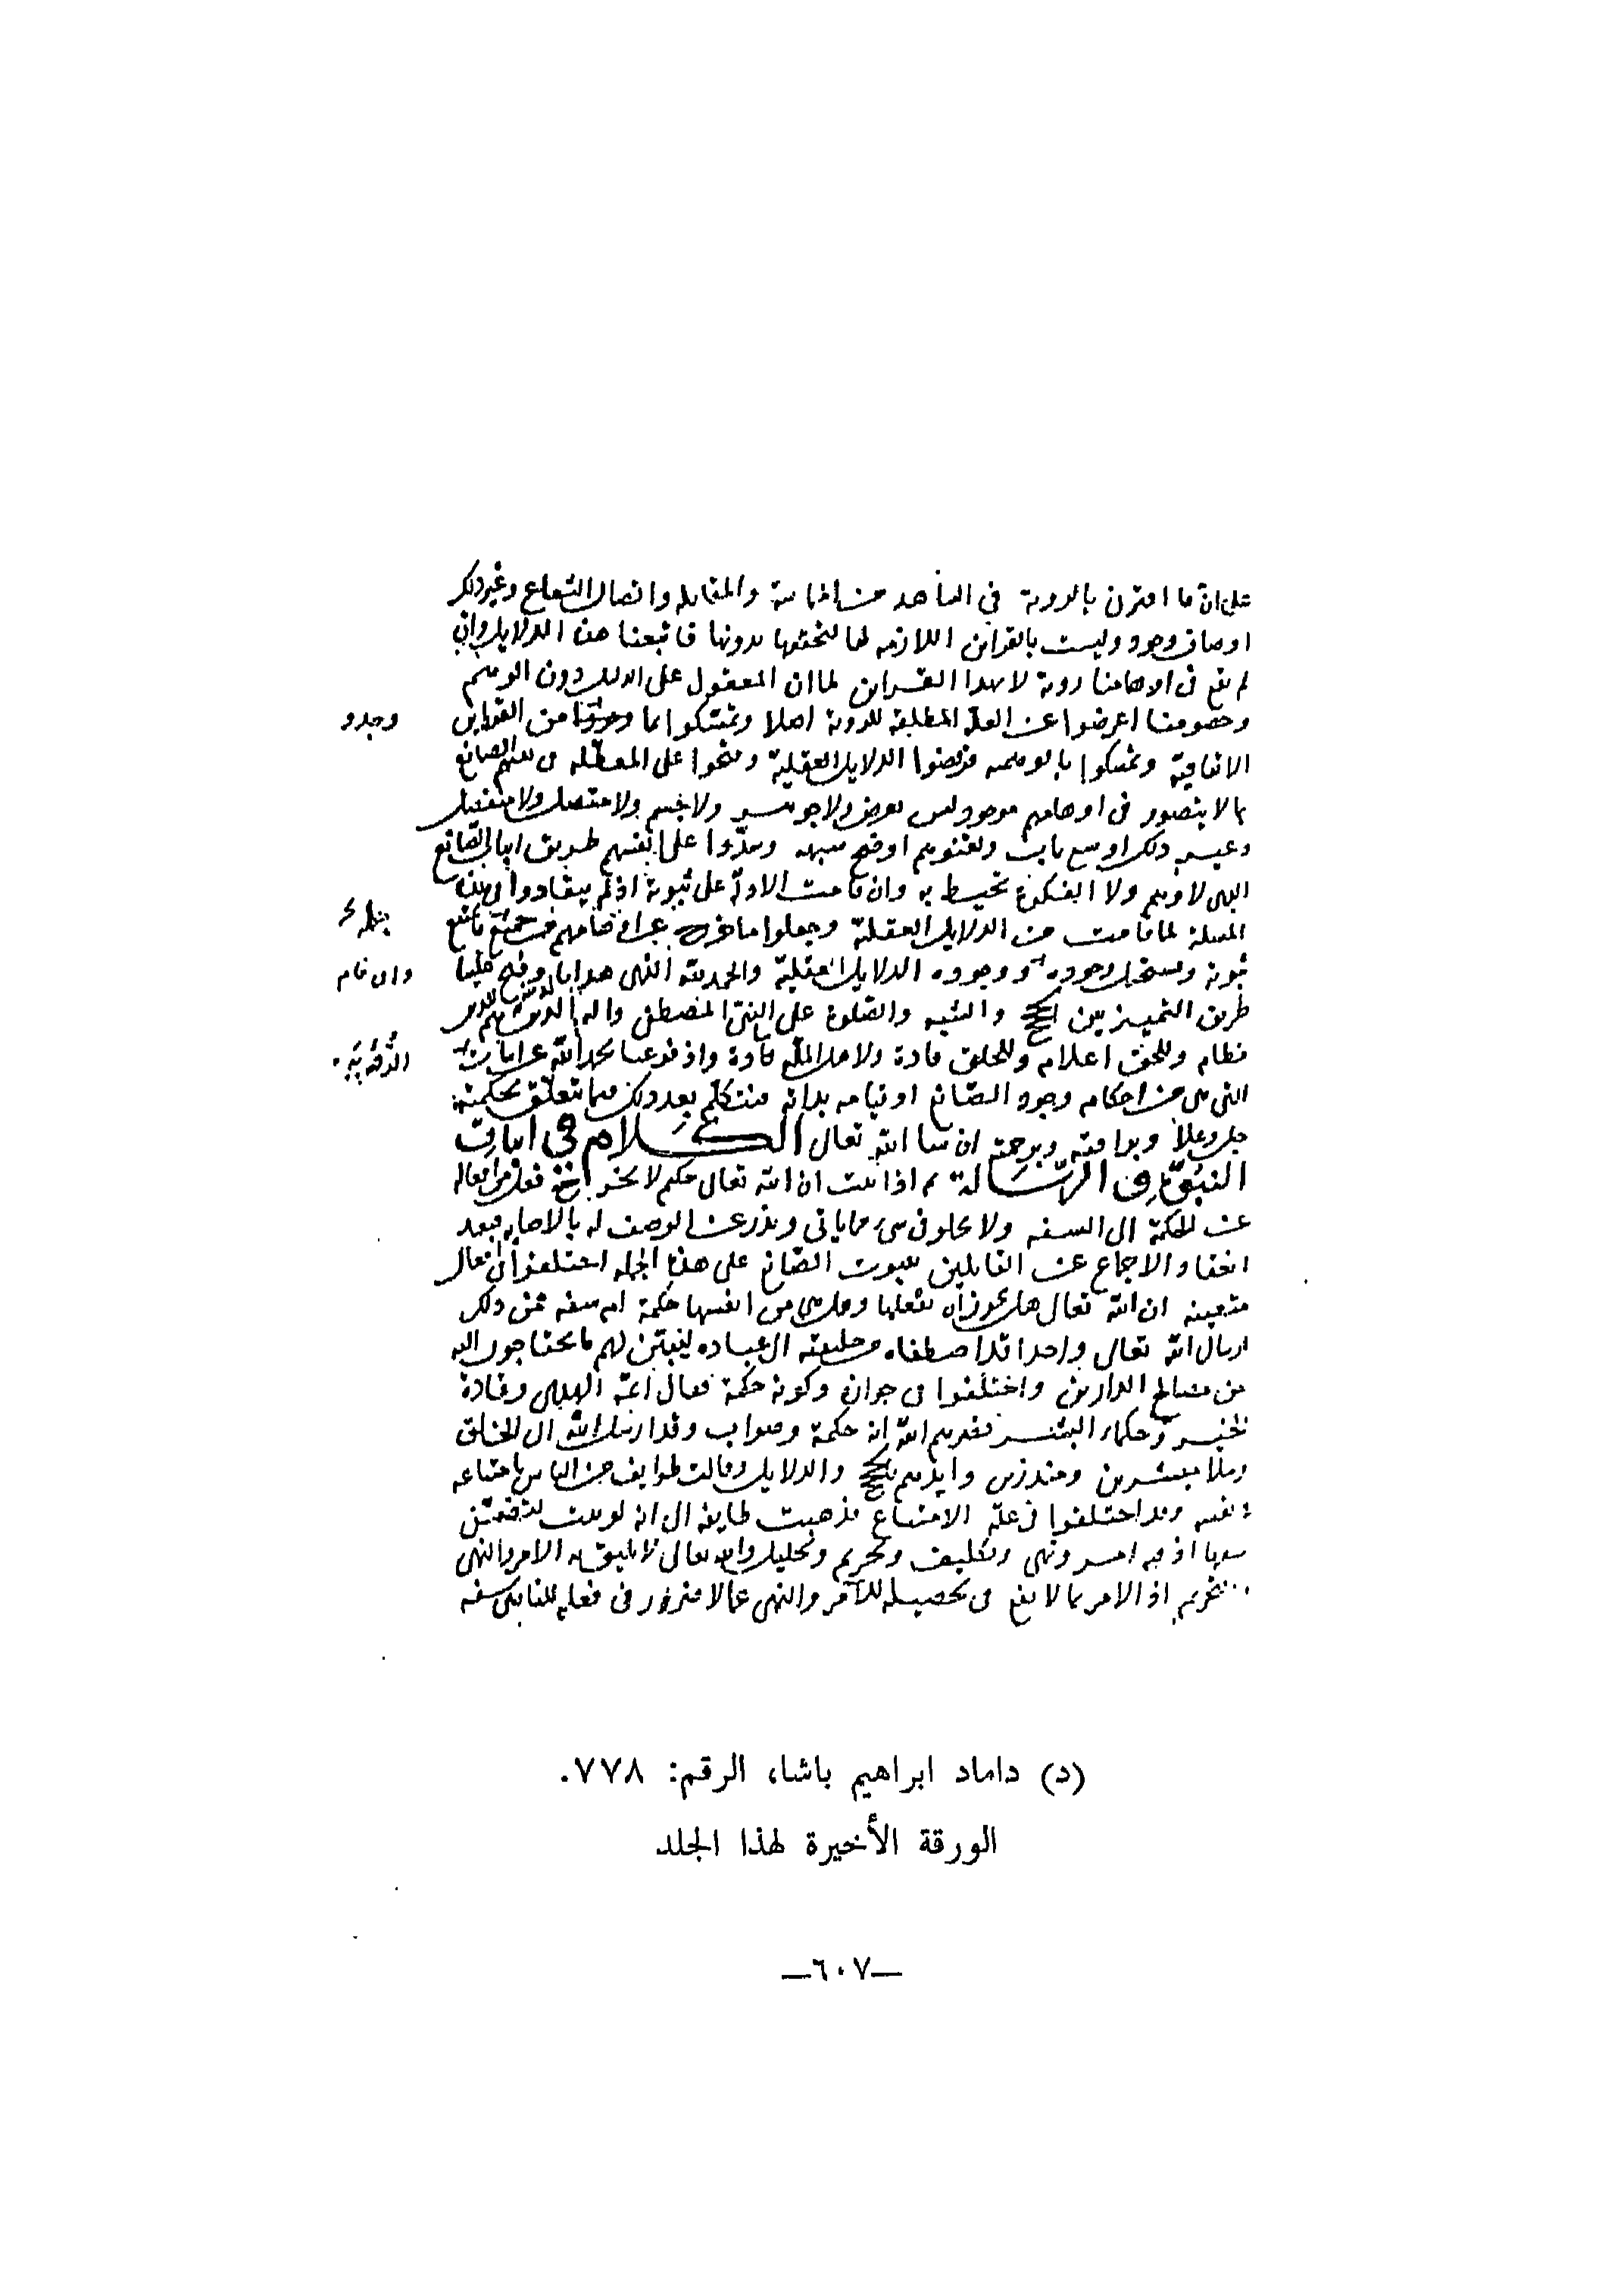 على ان ما اقترن بالروية في الشاهد من الجاسة والمقابله واتصال الشعاع وغير ذلك
اوصاف وجود وليست بالقراين اللازمه لها لتحققها بدونها فاتبعنا هذه الدلايل وان
لم يقع فى اوهامنا روية لا بهذا القران لما ان المعقول على الدليل دون الوهم
وخصومنا اعرضوا عن العلة المطلقة للروية اصلا وتمسكوا بما وجدوا من القراين
وجدو
الاتفاقية وتمسكوا بالوهم فرفضوا الدلايل العقلية على المعطله الصانع
بما لا يتصور فى اوهامهم موجود ليس بعرض ولا جوهر ولا جسم ولا متصل ولا منفصل
وغير ذلك اوسع باب اوضح شبهه وسدّوا على انفسهم طريق اثبات الصانع
الذى لا وهم ولا تحيط به وان قامت الادلة على ثبوته اذ لم ينقادوا فى هذه
المسلة لما قامت من الدلايل العقلية وجعلوا ما خرج عن اوهامهم
ثبوته ويستحيل وجوده وجوده الدلايل العقلية والحمد لله الذى هدانا
وان قام
طريق التمييز بين الحجج والشبه والصلوة على النبى المصطفى واله الذين هم للدين
نظام وللحق اعلام وللخلق قادة ولاهل الملة سادة واذ فرغنا بحمد الله عن اثبات
التى هى من احكام وجود الصانع او قيامه بذاته فنتكلم بعد ذلك فيما يتعلق بحكمته
جل وعلا وبرافته وبرحمته ان شا الله تعالى الكلام فى اثبات
النبوة والرسالة ثم اذا ثبت ان الله تعالى حكيم لا يخرج فعل من افعاله
عن الحكمة الى السفه ولا يخلو فى شى مما ياتى ويذر عن الوصف له بالاصابه فبعد
انعقاد الاجماع عن القايلين بثبوت الصانع على هذه الجمله اختلفوا فى افعال
متعينه ان الله تعالى هل يجوز ان يفعلها وهل هى من انفسها حكمة ام سفه فمن ذلك
ارسال الله تعالى واحدا قد اصطفاه من خليقته الى عباده ليبين لهم ما يحتاجون اليه
من مصالح الدارين واختلفوا فى جوازه وكونه حكمة فقال ايمة الهدى وقادة
الخير وحكماء البشر نصرهم الله انه حكمة وصواب وقد ارسل الله الى الخلق
رسلا مبشرين ومنذرين وايدهم بالحجج والدلايل وقالت طوايف من الناس بامتناعه
فى نفسه وقد اختلفوا فى علة الامتناع فذهبت طايفه الى انه لو ثبت
اذ فيه امر ونهى وتكليف وتحريم وتحليل والله تعالى لا يليق به الامر والنهى
والتحريم اذ الامر بما لا نفع فى تحصيله للآمر والنهى عما لا ضرر فى فعله للناهى سفه
(د) داماد ابراهيم باشا، الرقم: ٧٧٨.
الورقة الأخيرة لهذا الجلد
—٦٠٧—